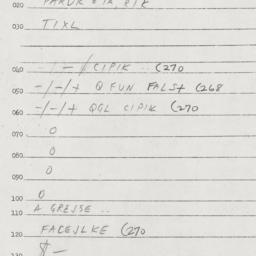 020
030 TIXL
040 -/CIPIK .. C270
050 -/-/+ Q FUN FALS+ C268
060 -/-/+ QGL CIPIK C270
070 0
080 0
090 0
100 0
110 A GREJSE ..
120 FACEJLKE C270
130 $ -